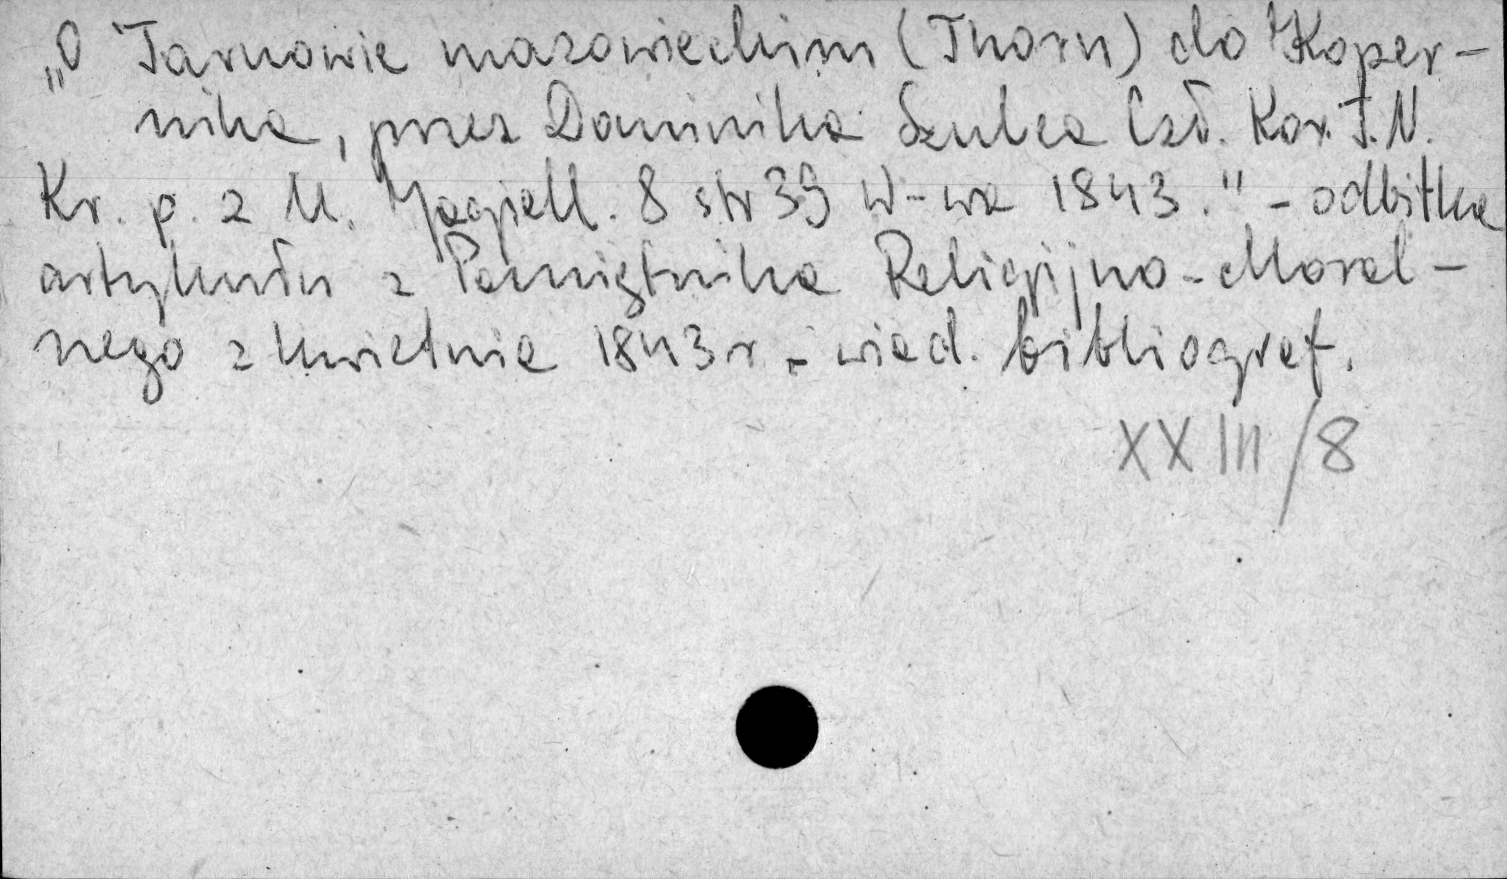 „O Tarnowie mazowieckim (Thorn) do Koper-
nika, przez Dominika Szulca Czł. Kor. T. N.
Kr. p. z U. Jagiell. 8 str 39 W-wa 1843." - odbitka
artykułu z Pamiętnika Religijno-Moral-
nego z kwietnia 1843 r. - wiad. bibliograf.
XXIII/8